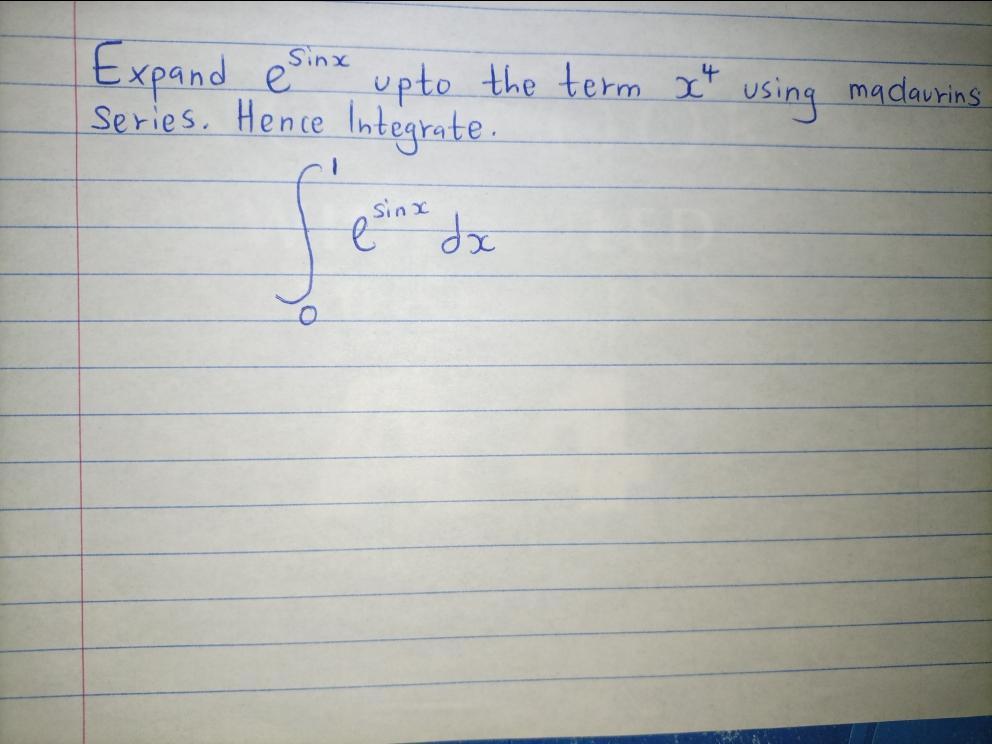 Expand e^sinx upto the term x^4 using maclaurins
Series. Hence Integrate.
∫_0^1 e^sinx dx